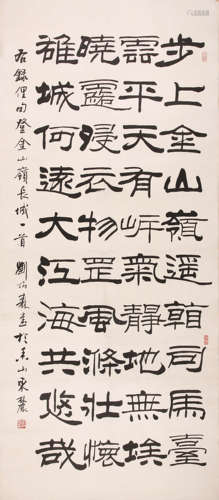 步上金山嶺遥朝司馬臺
雲平天有岸氣靜地無埃
曉露浸衣物罡風滌壯懷
雄城何遠大江海共悠哉
右録俚句登金山嶺長城一首 劉炳森 於 山東麓